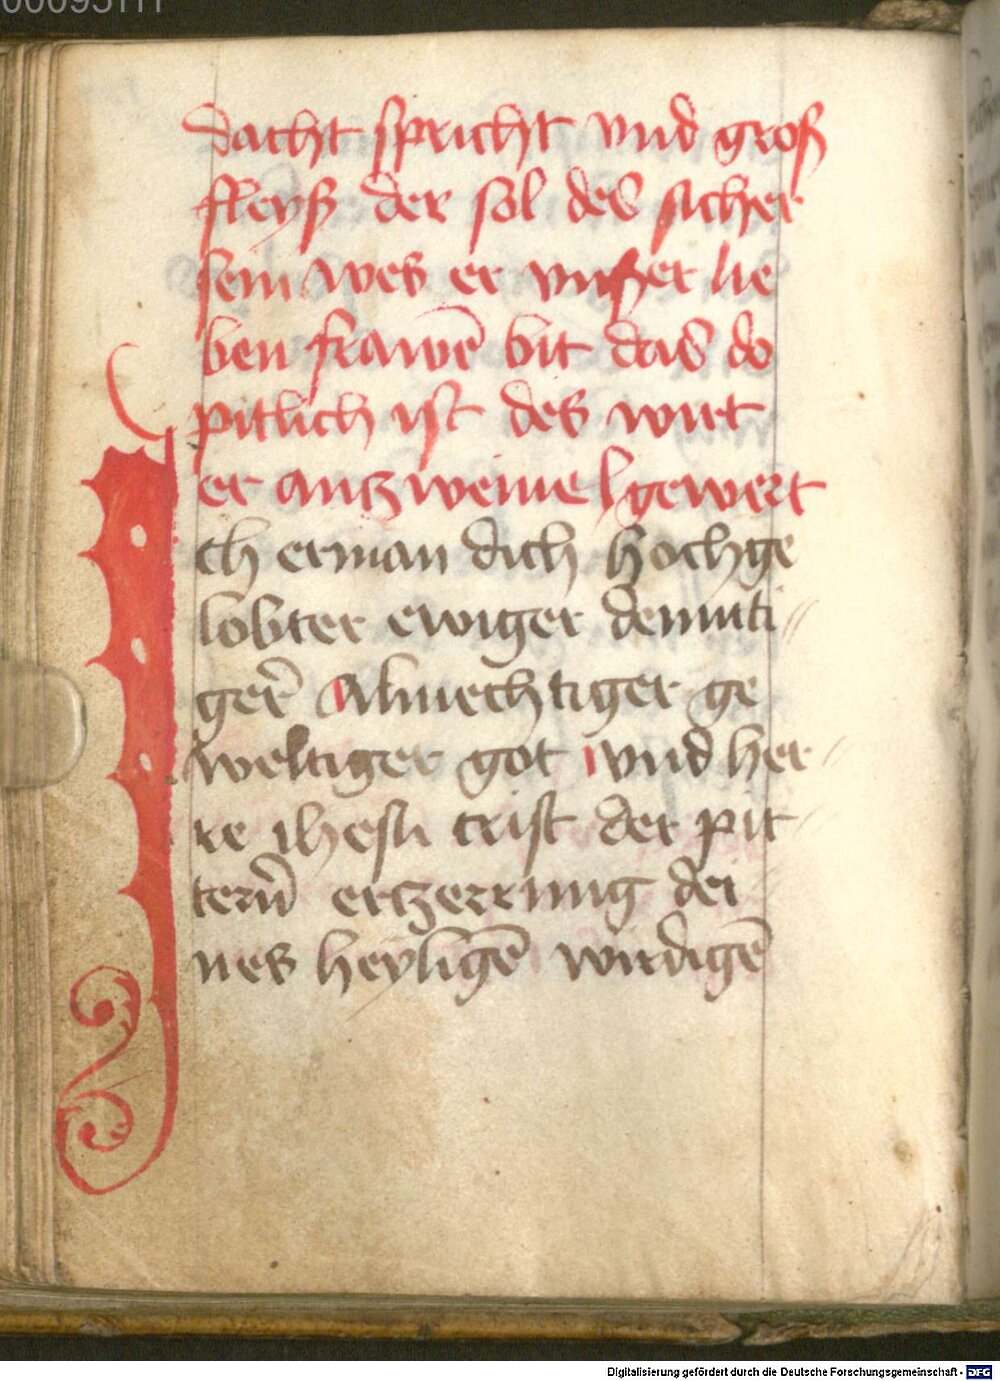 00095111
dacht spricht vnd groß
fleyß der sol des sicher
sein wes er vnßer lie
ben frawē bit das do
pitlich ist des wirt
er antzweiuel gewert
Ich erman dich hochge
lobter ewiger demuti⸗
ger̄ Almechtiger ge
weltiger got vnd her⸗
re ihesu crist der pit⸗
terñ ertzerrung dei⸗
nes heyligē wirdigē
Digitalisierung gefördert durch die Deutsche Forschungsgemeinschaft - DFG